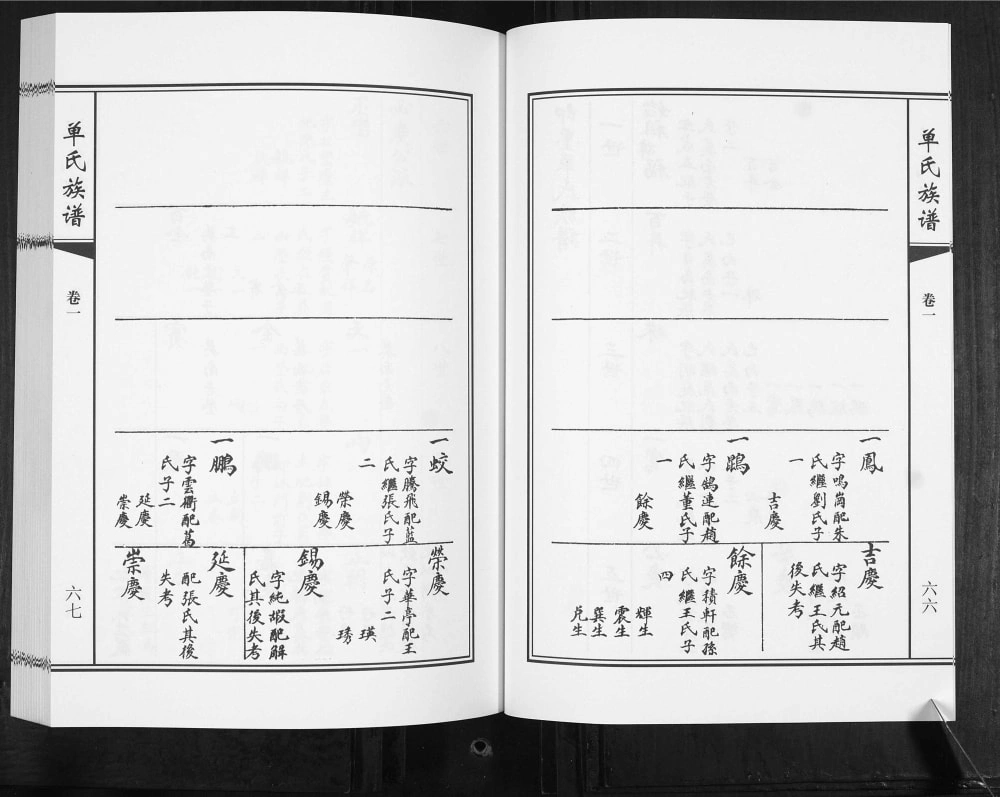 单氏族谱
卷一
六六
一鳳
字鳴崗配朱
氏繼劉氏子
一
吉慶
一鵾
字鵠連配趙
氏繼董氏子
一
餘慶
吉慶
字紹元配趙
氏繼王氏其
後失考
餘慶
字積軒配孫
氏繼王氏子
四
輝生
震生
巽生
兑生
单氏族谱
卷一
六七
一蛟
字騰飛配藍
氏繼張氏子
二
榮慶
錫慶
一鵬
字雲衢配葛
氏子二
延慶
崇慶
榮慶
字華亭配王
氏子二
瑛
琇
錫慶
字純嘏配解
氏其後失考
延慶
配張氏其後
失考
崇慶